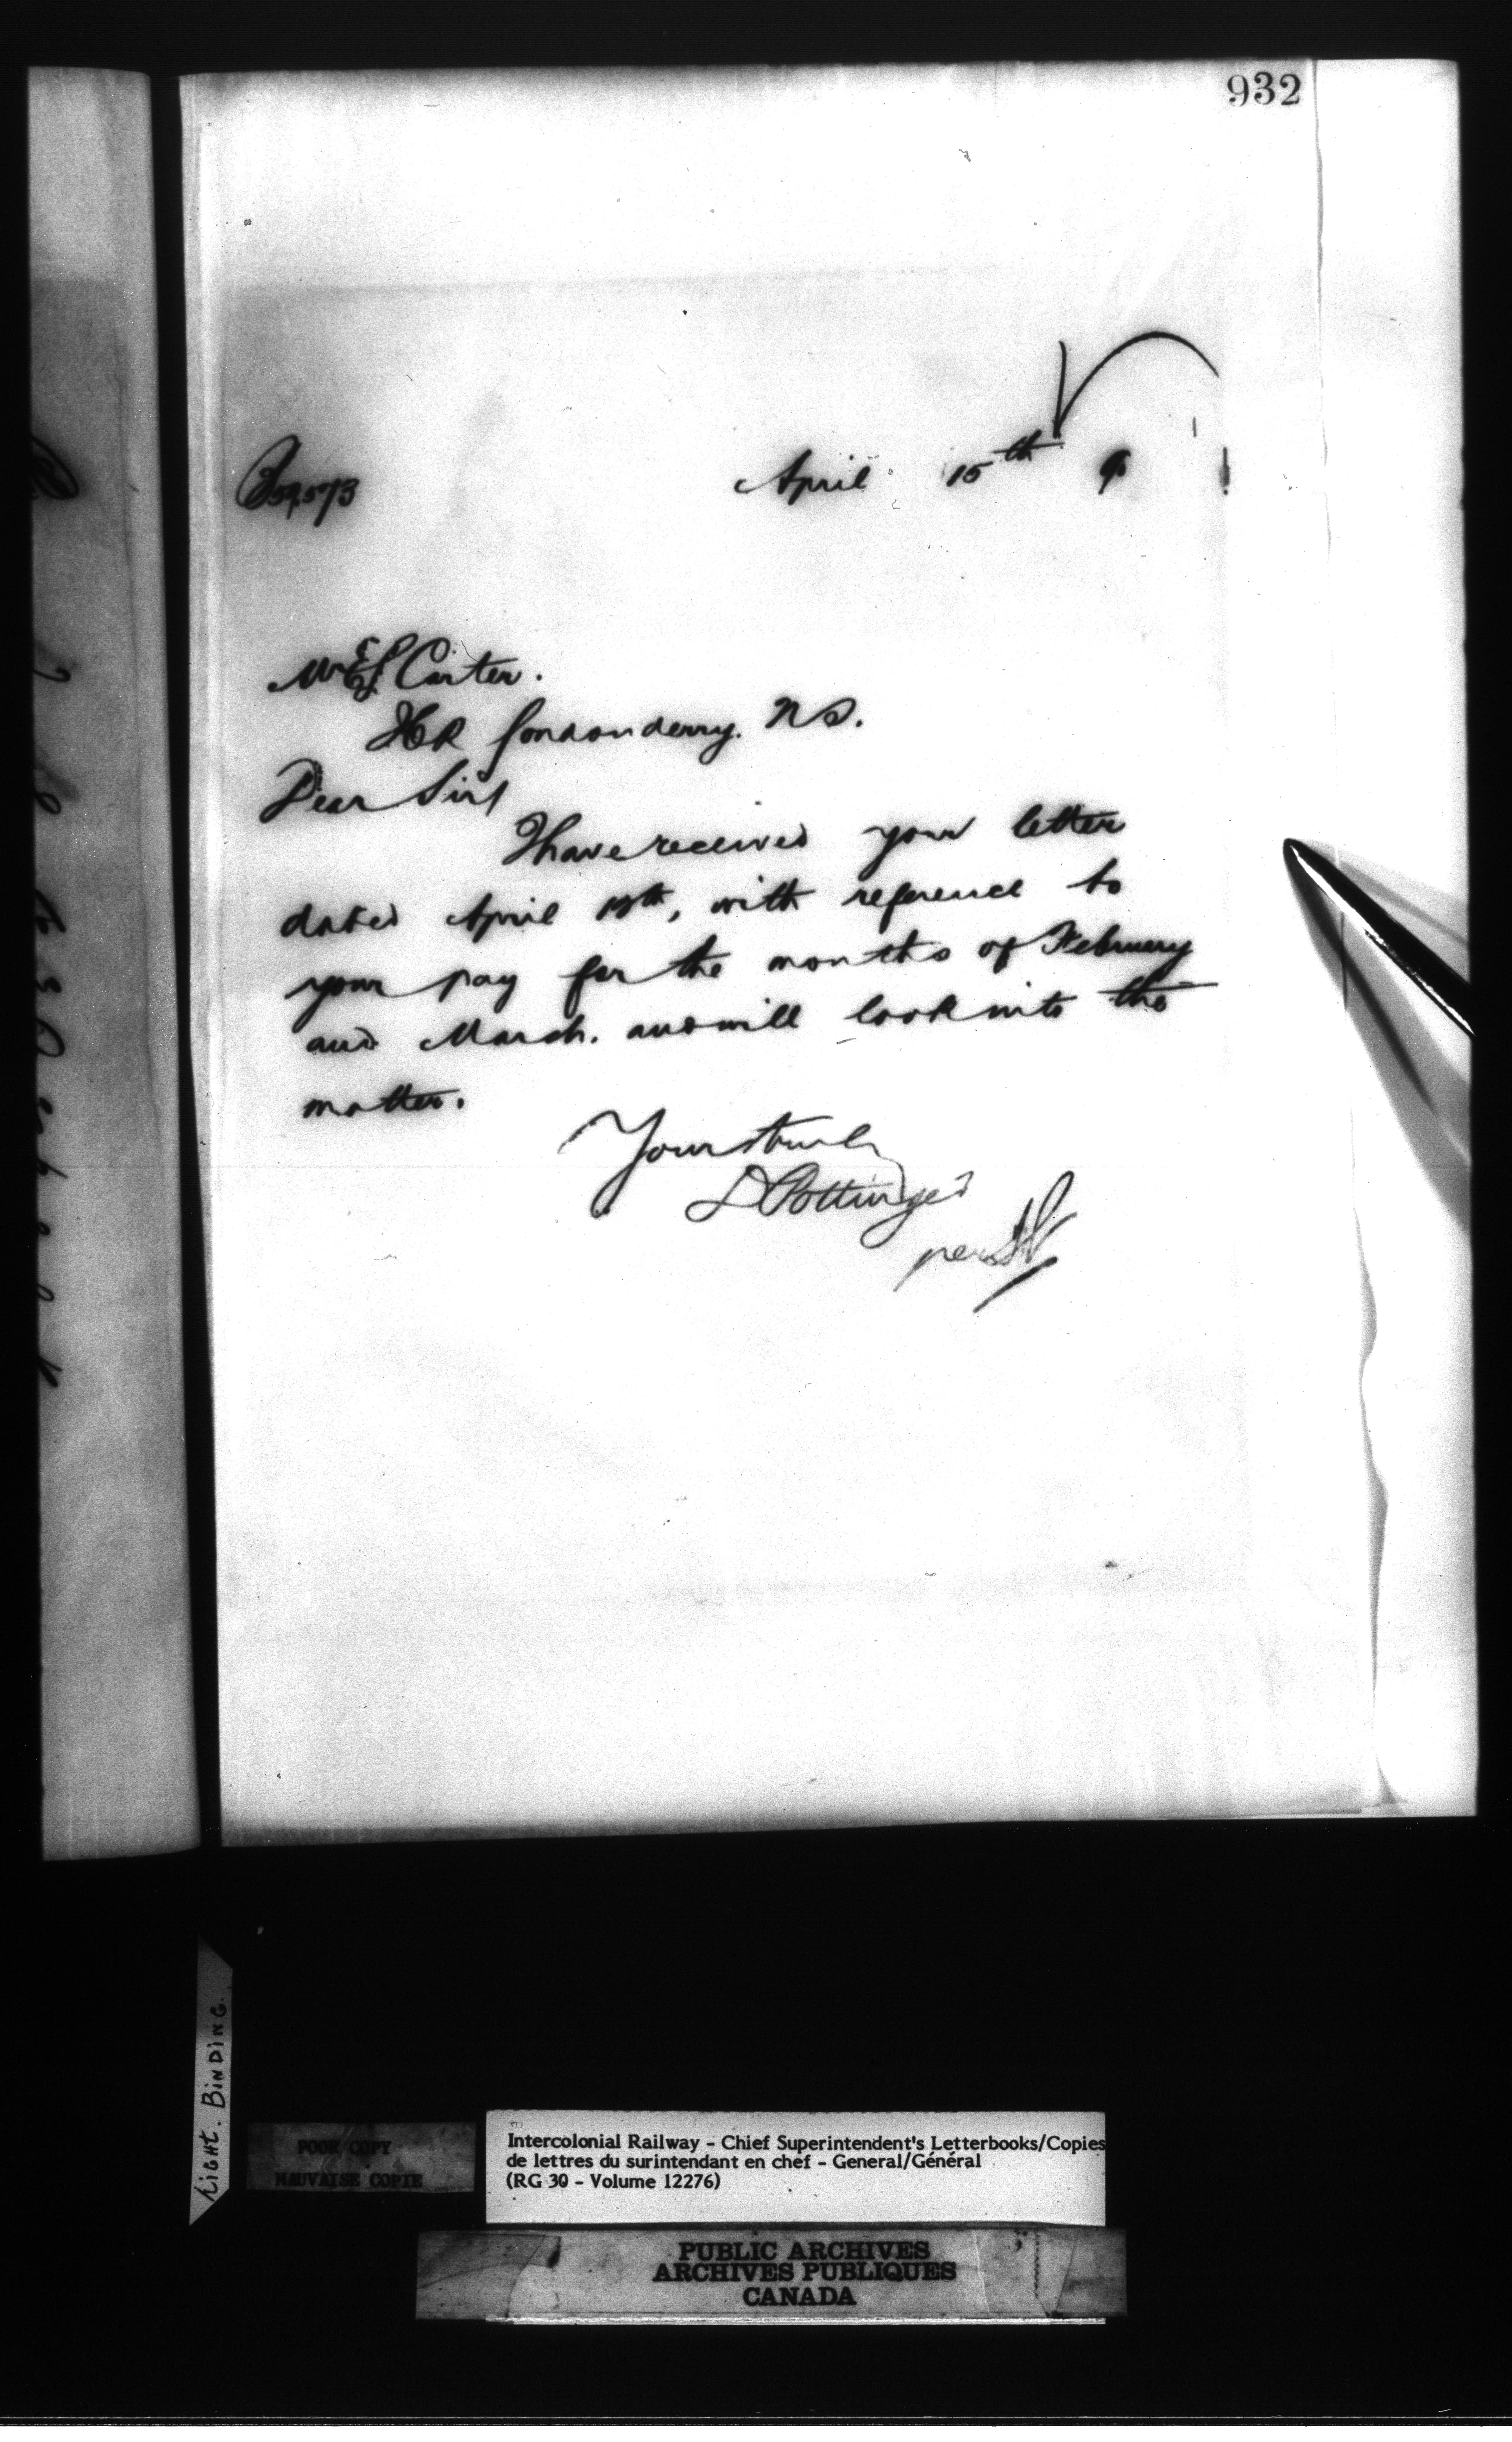 932
April 15th 9
Mr E S Carter.
Londonderry. N S.
Dear Sir
I have received your letter
dated April 13th, with reference to
your pay for the months of February
and March. and will look into the
matter.
Yours truly
D Pottinger
per
TIGHT. BINDING.
POOR COPY
MAUVAISE COPIE
Intercolonial Railway - Chief Superintendent's Letterbooks/Copies
de lettres du surintendant en chef - General/Général
(RG 30 - Volume 12276)
PUBLIC ARCHIVES
ARCHIVES PUBLIQUES
CANADA